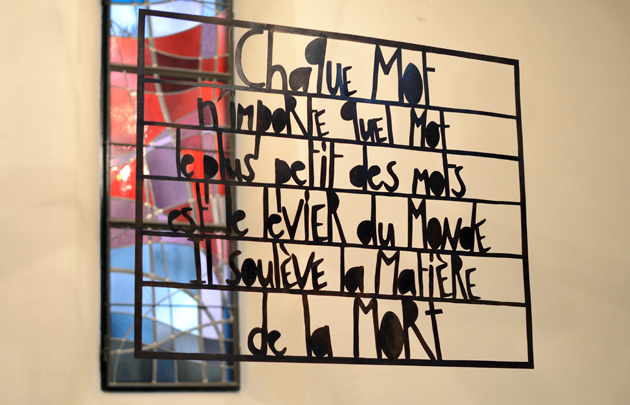 Chaque Mot
n'importe quel Mot
le plus petit des mots
est le levier du Monde
Il soulève la Matière
de la MORT